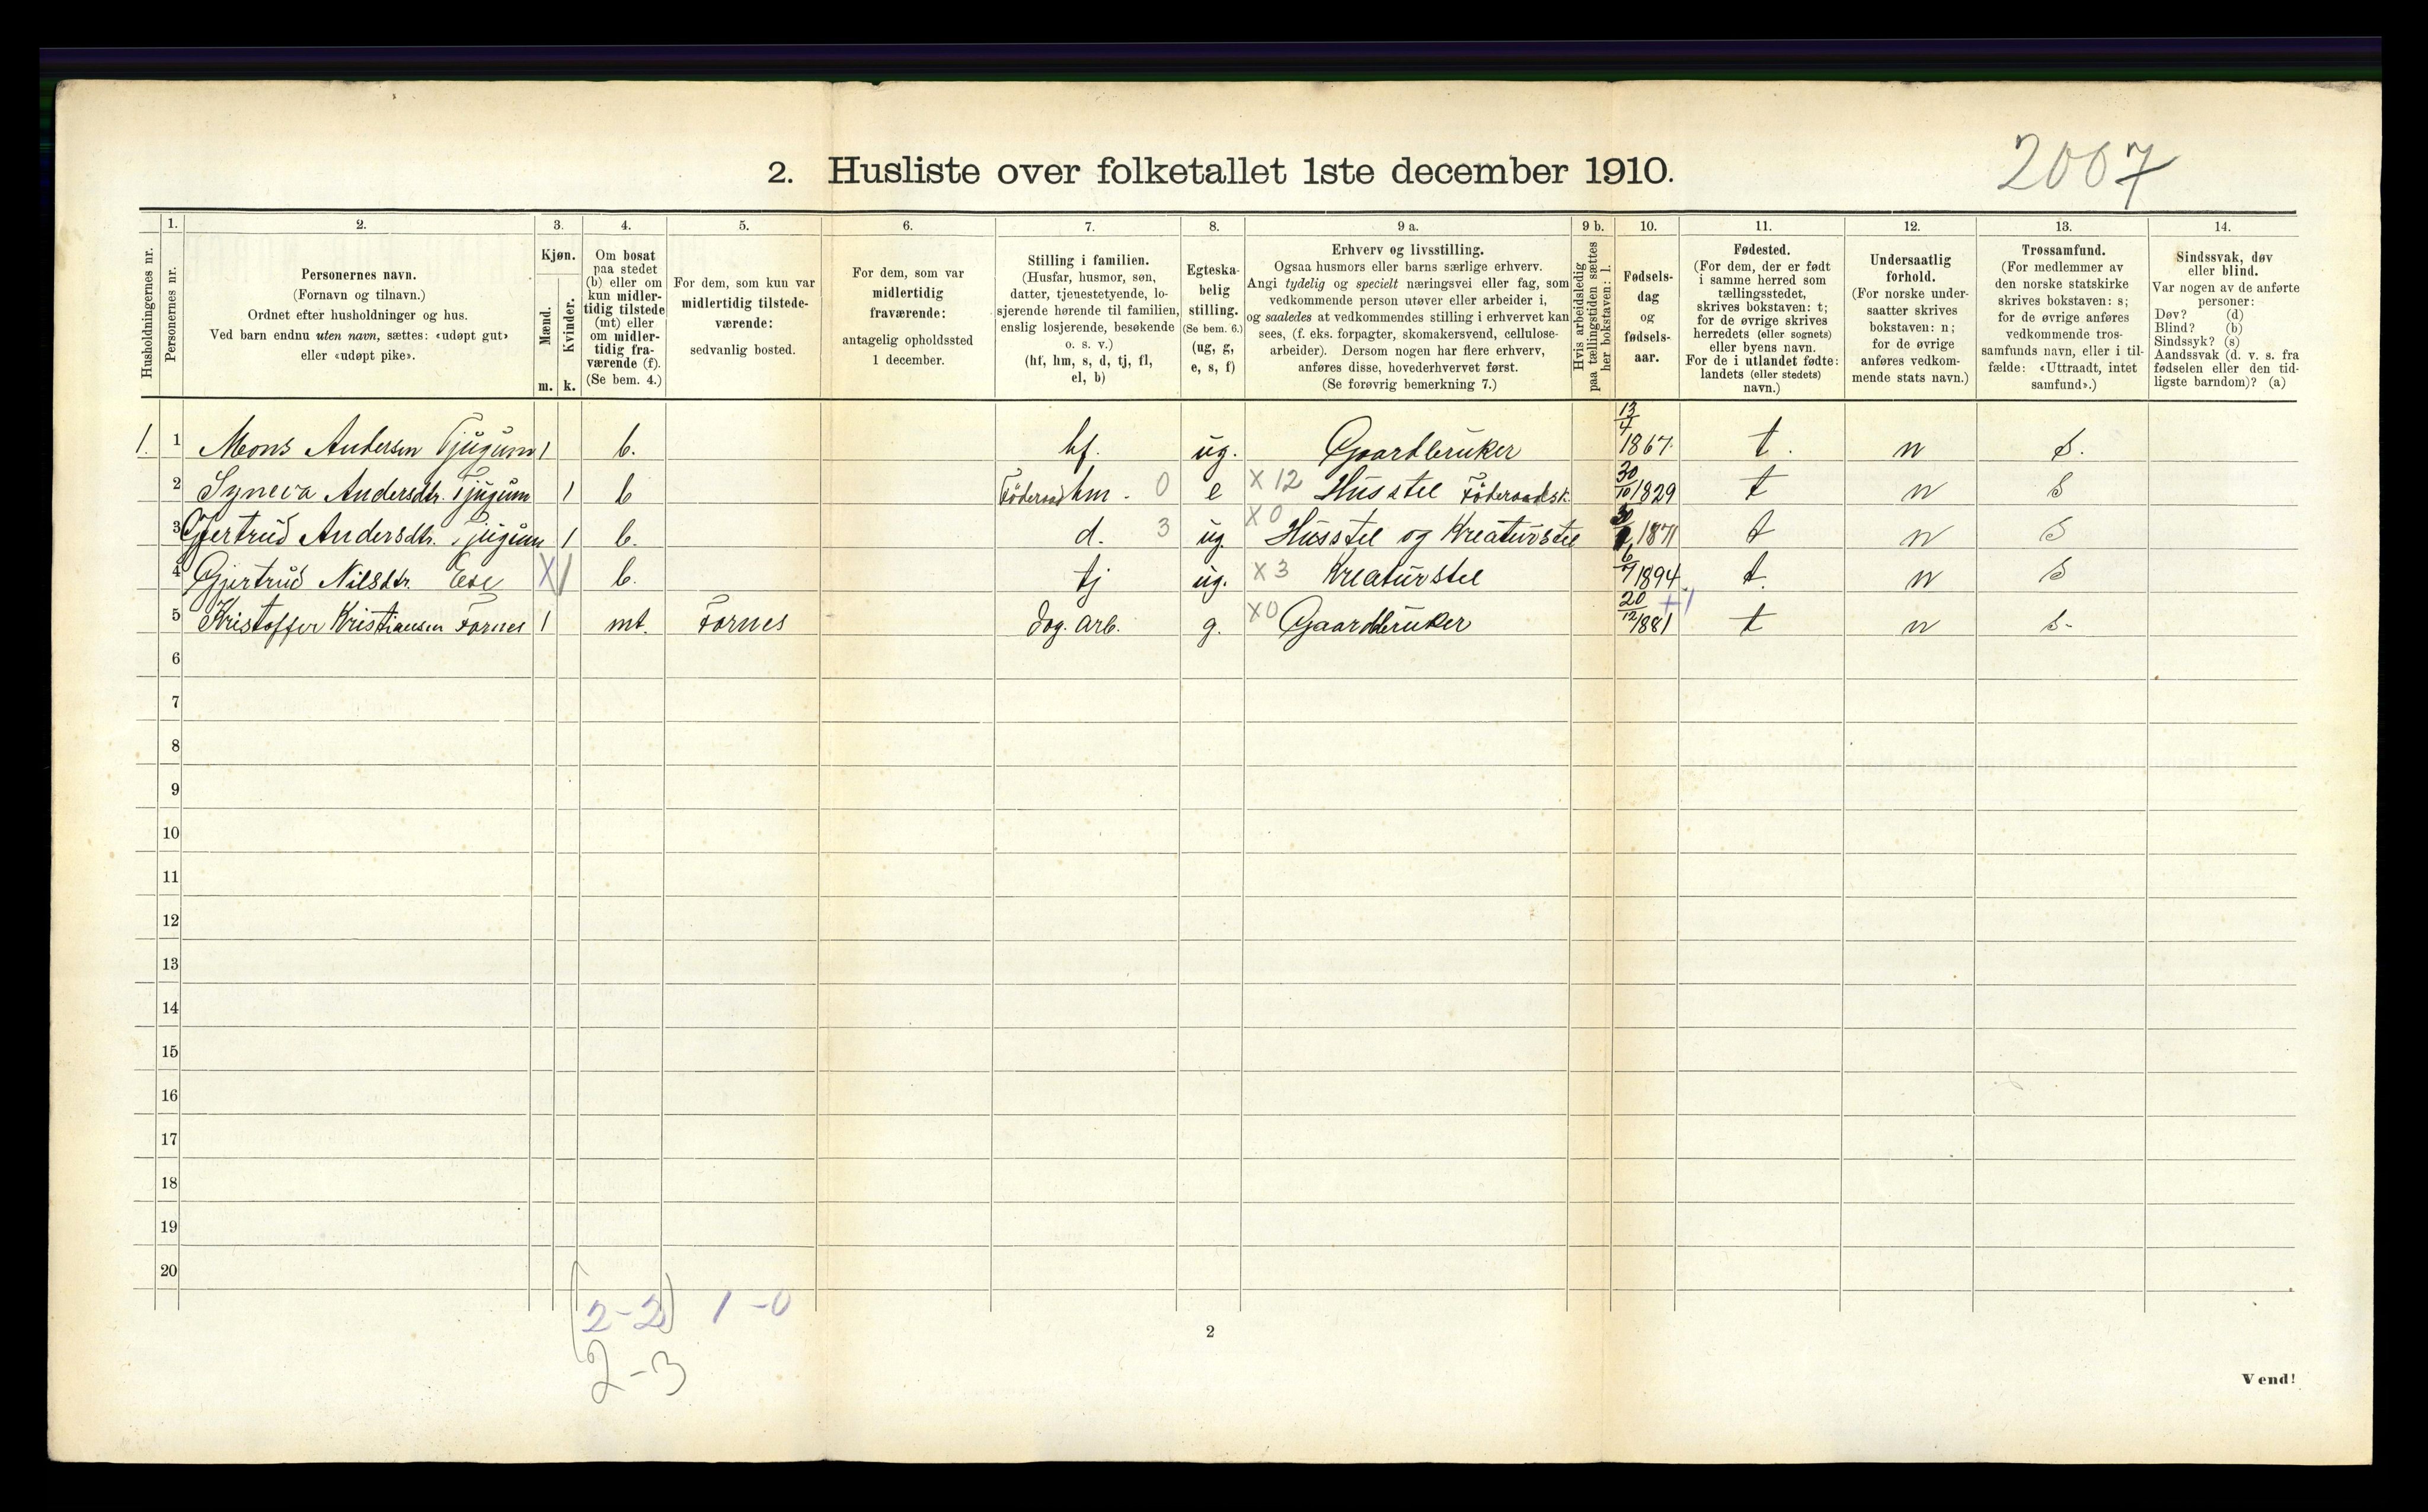 2. Husliste over folketallet 1ste december 1910.
2007
Husholdningernes nr.
1.
Personernes nr.
2.
Personernes navn.
(Fornavn og tilnavn.)
Ordnet efter husholdninger og hus.
Ved barn endnu uten navn, sættes: «udøpt gut»
eller «udøpt pike».
3.
Kjøn.
Mænd.
m.
Kvinder.
k.
4.
Om bosat
paa stedet
(b) eller om
kun midler-
tidig tilstede
(mt) eller
om midler-
tidig fra-
værende (f).
(Se bem. 4.)
5.
For dem, som kun var
midlertidig tilstede-
værende:
sedvanlig bosted.
6.
For dem, som var
midlertidig
fraværende:
antagelig opholdssted
1 december.
7.
Stilling i familien.
(Husfar, husmor, søn,
datter, tjenestetyende, lo-
sjerende hørende til familien,
enslig losjerende, besøkende
o. s. v.)
(hf, hm, s, d, tj, fl,
el, b)
8.
Egteska-
belig
stilling.
(Se bem. 6.)
(ug, g,
e, s, f)
9 a.
Erhverv og livsstilling.
Ogsaa husmors eller barns særlige erhverv.
Angi tydelig og specielt næringsvei eller fag, som
vedkommende person utøver eller arbeider i,
og saaledes at vedkommendes stilling i erhvervet kan
sees, (f. eks. forpagter, skomakersvend, cellulose-
arbeider). Dersom nogen har flere erhverv,
anføres disse, hovederhvervet først.
(Se forøvrig bemerkning 7.)
9 b.
Hvis arbeidsledig
paa tællingstiden sættes
her bokstaven: l.
10.
Fødsels-
dag
og
fødsels-
aar.
11.
Fødested.
(For dem, der er født
i samme herred som
tællingsstedet,
skrives bokstaven: t;
for de øvrige skrives
herredets (eller sognets)
eller byens navn.
For de i utlandet fødte:
landets (eller stedets)
navn.)
12.
Undersaatlig
forhold.
(For norske under-
saatter skrives
bokstaven: n;
for de øvrige
anføres vedkom-
mende stats navn.)
13.
Trossamfund.
(For medlemmer av
den norske statskirke
skrives bokstaven: s;
for de øvrige anføres
vedkommende tros-
samfunds navn, eller i til-
fælde: «Uttraadt, intet
samfund».)
14.
Sindssvak, døv
eller blind.
Var nogen av de anførte
personer:
Døv? (d)
Blind? (b)
Sindssyk? (s)
Aandssvak (d. v. s. fra
fødselen eller den tid-
ligste barndom)? (a)
1. 1 Mons Andersen Tjugum 1 b. hf. ug. Gaardbruker 13/4 1867 t. n s.
2 Synneva Andersdtr. Tjugum 1 b Föderaad hm. 0 e X 12 Husstel Föderaadsk. 30/10 1829 t n s
3 Gjertrud Andersdtr. Tjugum 1 b. d. 3 ug. X0 Husstel og Kreaturstel 1871 t n s
4 Gjertrud Nilsdtr. Ese X 1 b. tj ug. X 3 Kreaturstel 6/7 1894 t. n s
5 Kristoffer Kristiansen Fornes 1 mt. Fornes dag. arb. g. X0 Gaardbruker 20/12 1881 +1 t n s.
6
7
8
9
10
11
12
13
14
15
16
17
18
19
20
(2-2) 1-0
2-3
2
Vend!